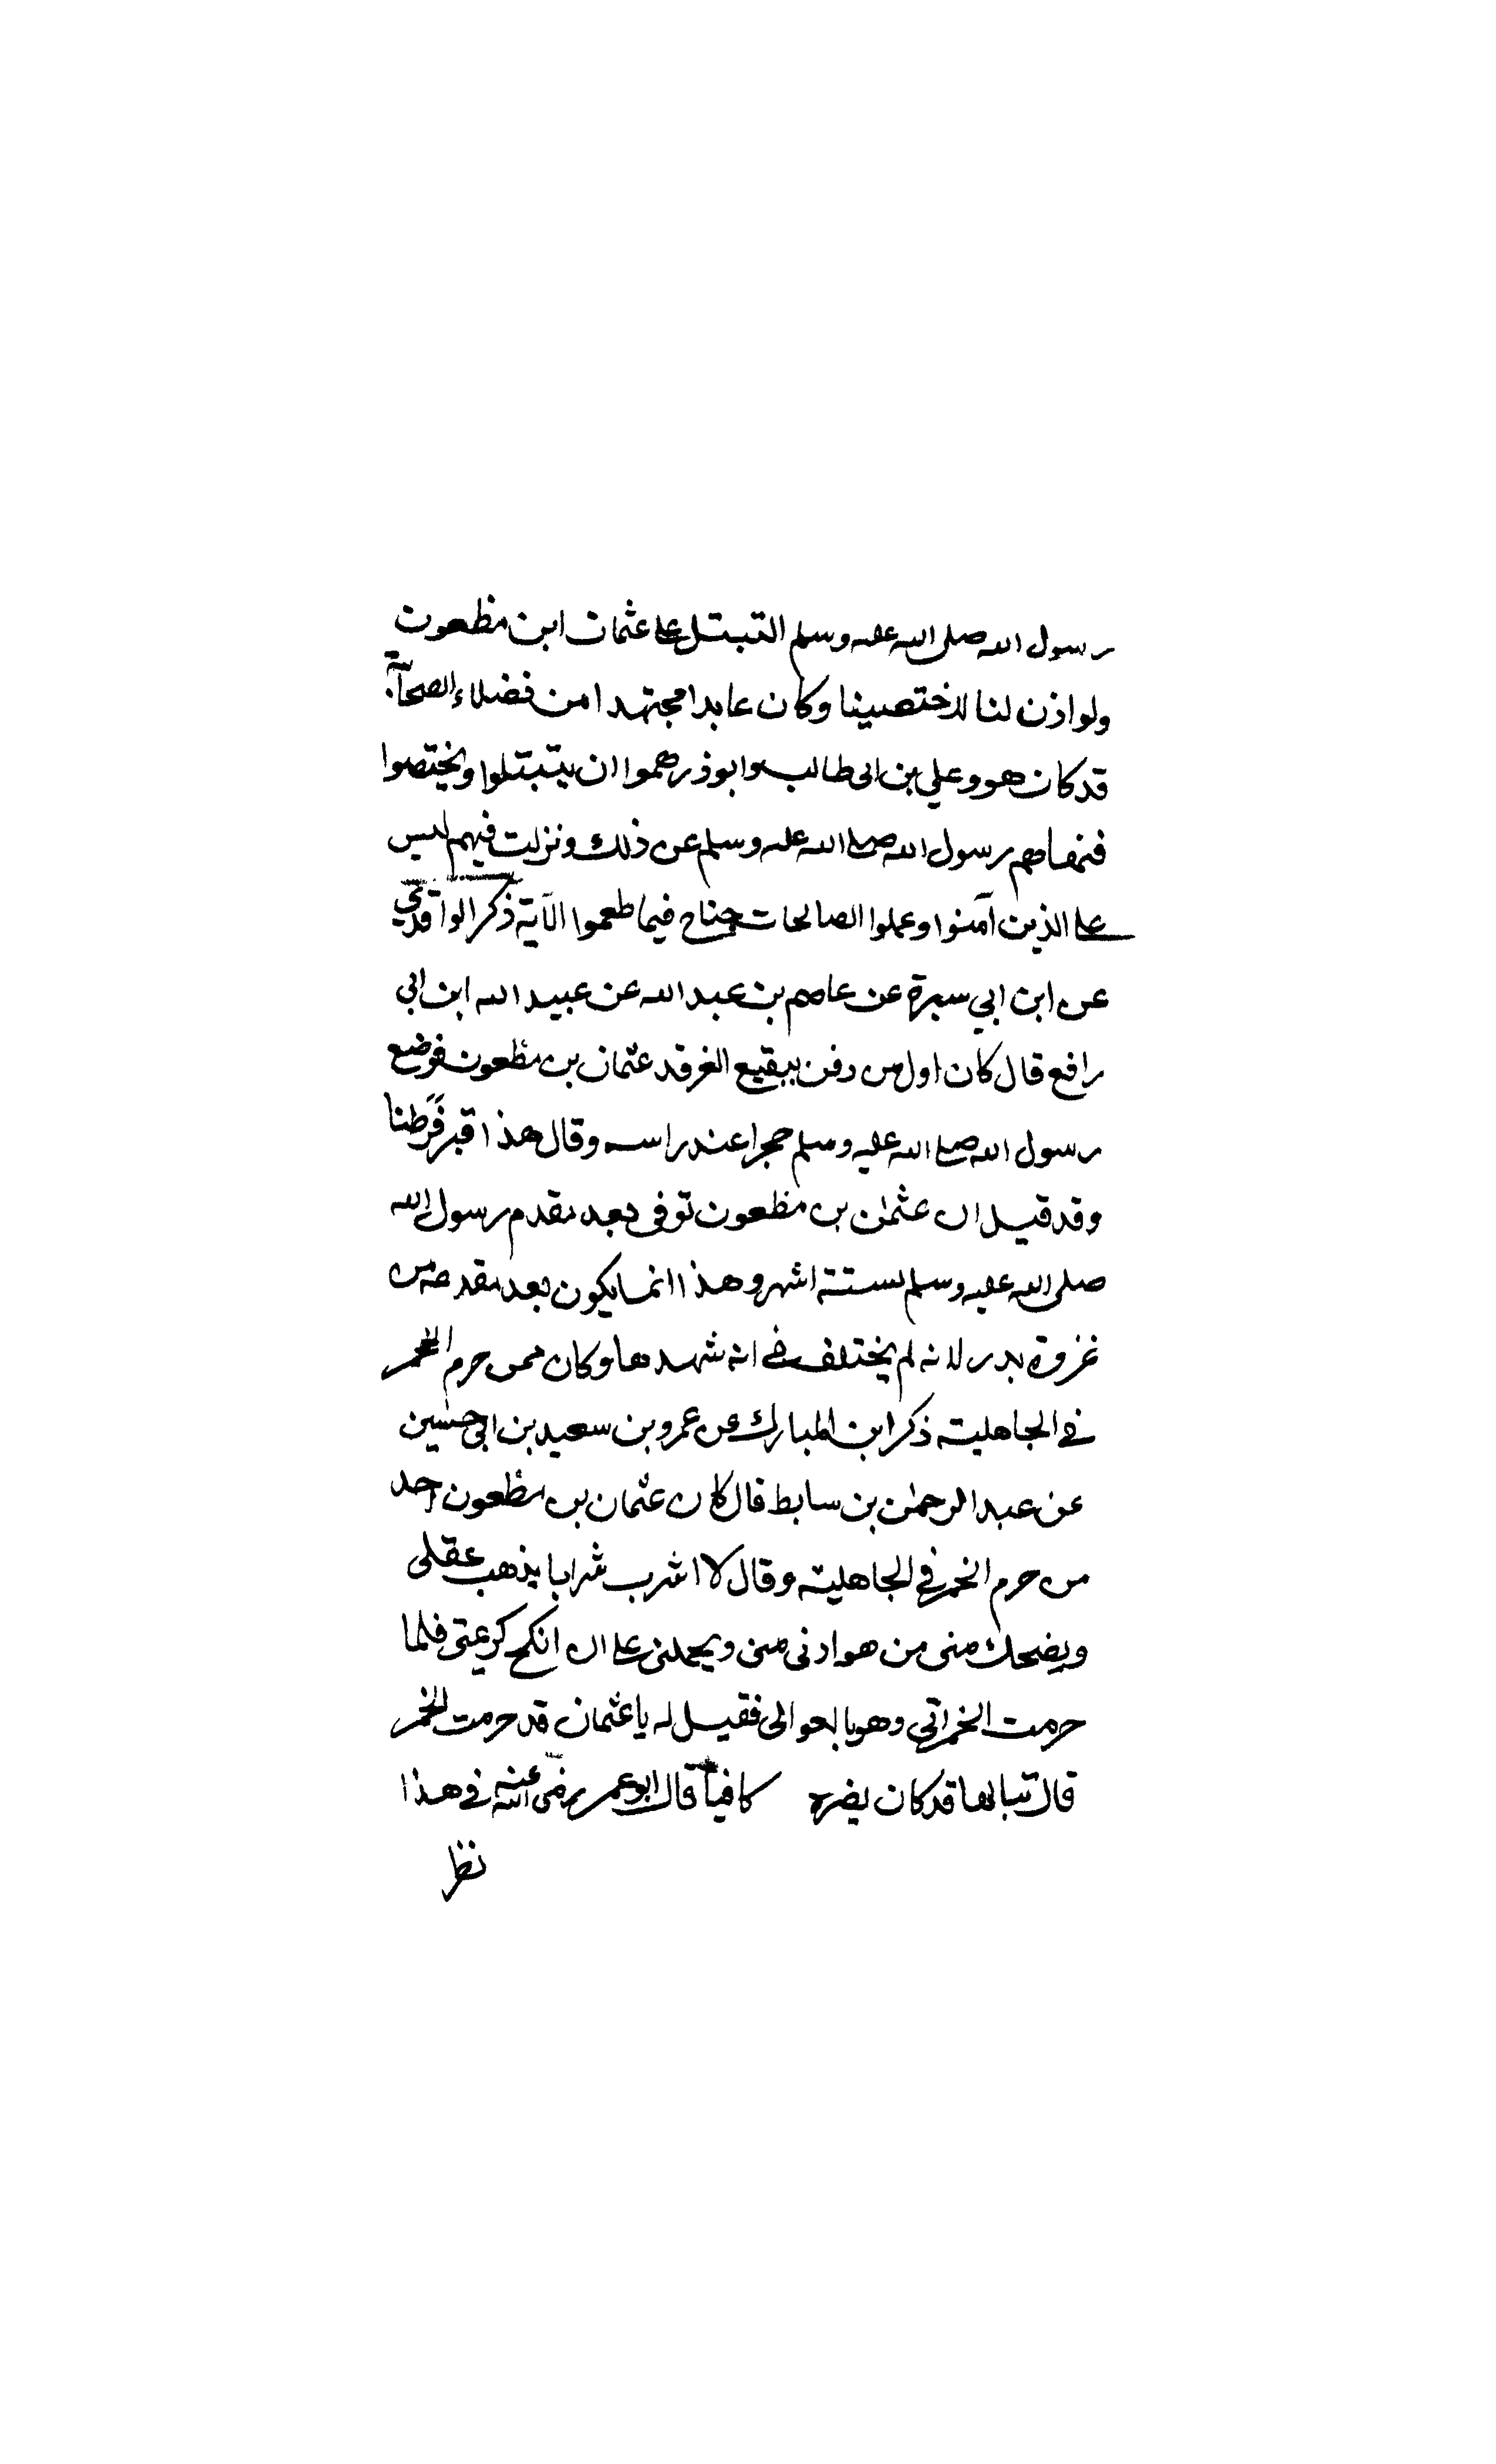 رسول الله صلى الله عليه وسلم التبتل على عثمان ابن مظعون
ولو اذن لنا لاختصينا وكان عابدا مجتهدا من فضلاء الصحابة
قد كان هو وعلي بن ابى طالب وابو ذر هموا ان يتبتلوا ويختصوا
فنهاهم رسول الله صلى الله عليه وسلم عن ذلك ونزلت فيهم ليس
على الذين آمنوا وعملوا الصالحات جناح فيما طعموا الآية ذكر الواقدي
عن ابن ابي سبرة عن عاصم بن عبد الله عن عبيد الله ابن ابي
رافع قال كان اول من دفن ببقيع الغرقد عثمان بن مظعون فوضع
رسول الله صلى الله عليه وسلم حجرا عند راسه وقال هذا قبر فرطنا
وقد قيل ان عثمن بن مظعون توفى بعد مقدم رسول الله
صلى الله عليه وسلم بستة اشهر وهذا انما يكون بعد مقدمه من
غزوة بدر لانه لم يختلف في انه شهدها وكان ممن حرم الخمر
في الجاهلية ذكر ابن المبارك عن عمرو بن سعيد بن ابي حسين
عن عبد الرحمن بن سابط قال كان عثمان بن مظعون احد
من حرم الخمر في الجاهلية وقال لا اشرب شرابا يذهب عقلى
ويضحك منى من هو ادنى منى ويحملنى على ان انكح كريمتى فلما
حرمت الخمر اتى وهو بالعوالى فقيل له يا عثمان قد حرمت الخمر
قال تبا لها قد كان بصرى فيها قال ابو عمر رضى الله عنه في هذا
نظر